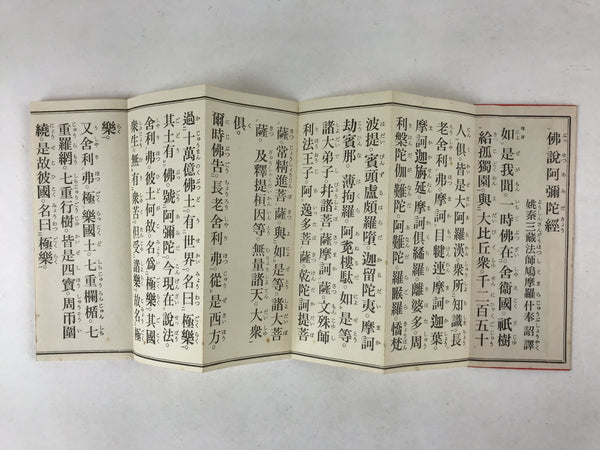 佛說阿彌陀經
姚秦三藏法師鳩摩羅什奉詔譯
如是我聞。一時佛在舍衞國祇樹
給孤獨園與大比丘衆千二百五十
人俱。皆是大阿羅漢衆所知識。長
老舍利弗。摩訶目犍連摩訶迦葉。
摩訶迦旃延摩訶俱絺羅離婆多周
利槃陀伽難陀阿難陀羅睺羅憍梵
波提。賓頭盧頗羅墮。迦留陀夷。摩訶
劫賓那。薄拘羅。阿㝹樓駄。如是等。
諸大弟子。幷諸菩薩摩訶薩。文殊師
利法王子。阿逸多菩薩乾陀訶提菩
薩。常精進菩薩。與如是等諸大菩
薩。及釋提桓因等。無量諸天。大衆
俱。
爾時佛告。長老舍利弗。從是西方。
過十萬億佛土。有世界。名曰極樂。
其土有佛。號阿彌陀。今現在說法。
舍利弗。彼土何故。名爲極樂。其國
衆生。無有衆苦。但受諸樂。故名極
樂。
又舍利弗。極樂國土。七重欄楯。七
重羅網。七重行樹。皆是四寶。周帀圍
繞。是故彼國。名曰極樂。